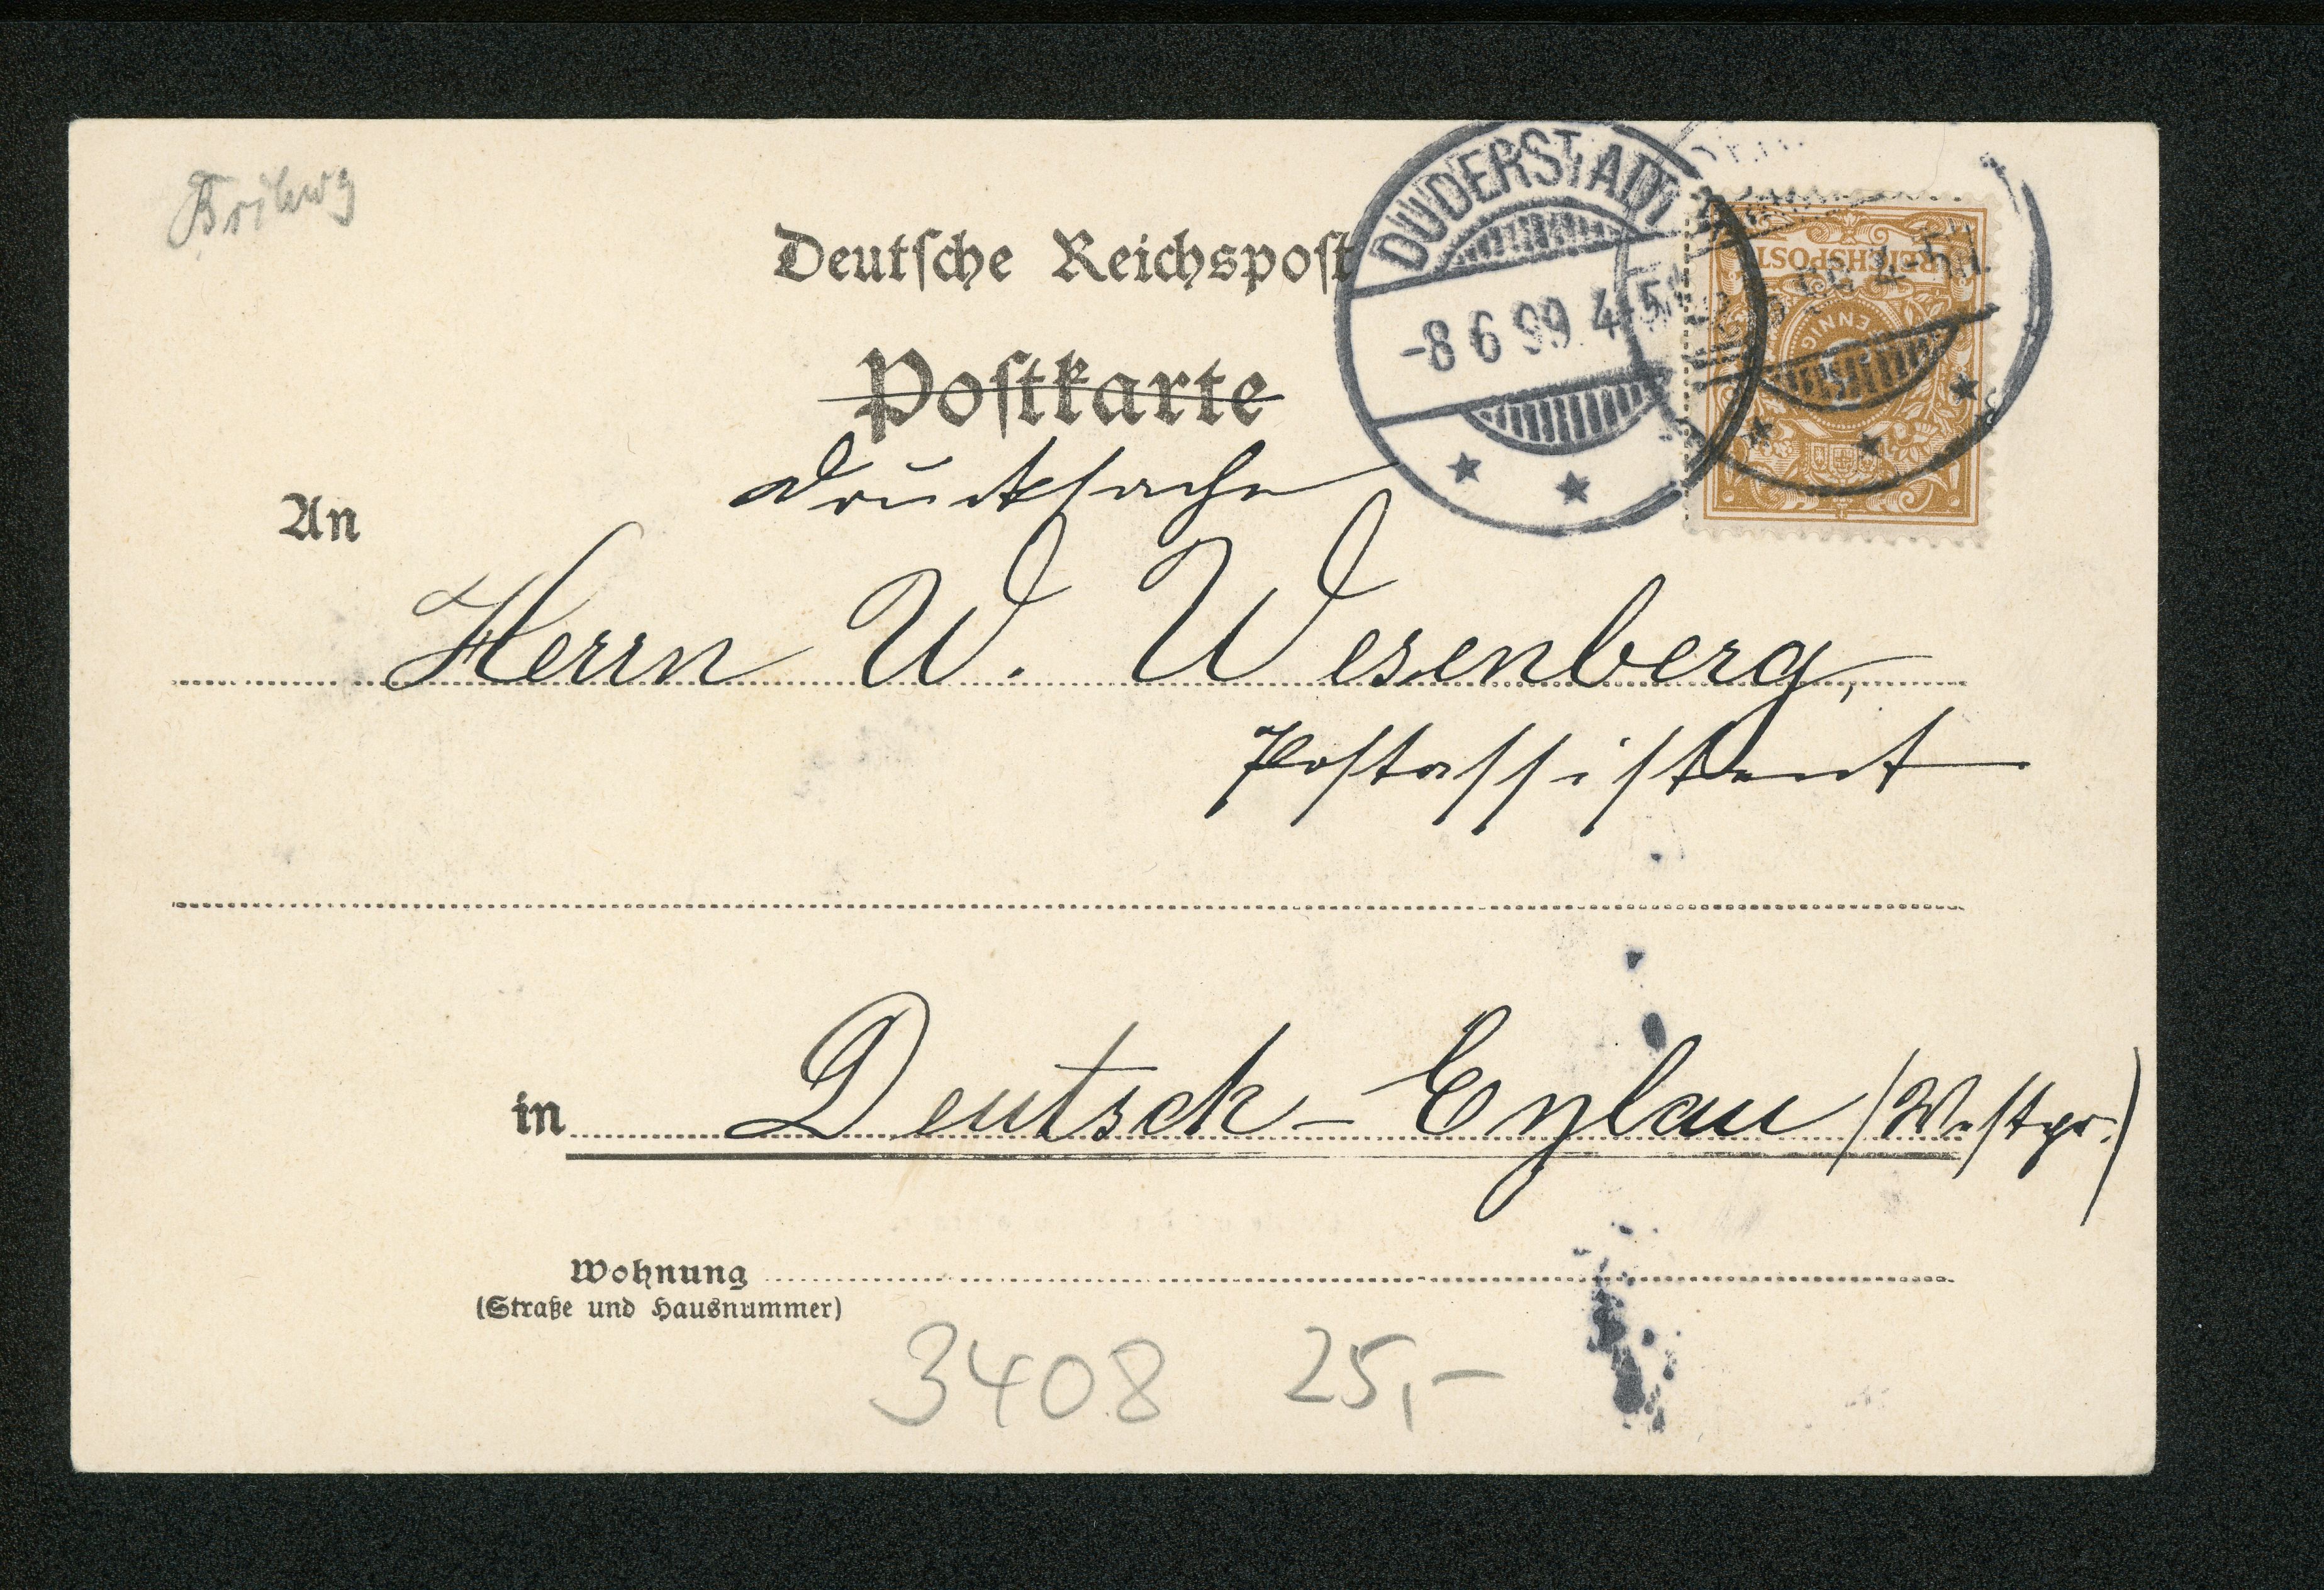 Deutsche Reichspost
DUDERSTADT
-8 6 99. 4-5N.
REICHSPOST
PFENNIG
Postkarte
Drucksache
An
Herrn W. Wesenberg,
Postassistent
in Deutsch-Eylau (Westpr.)
Wohnung
(Straße und Hausnummer)
3408 25,-